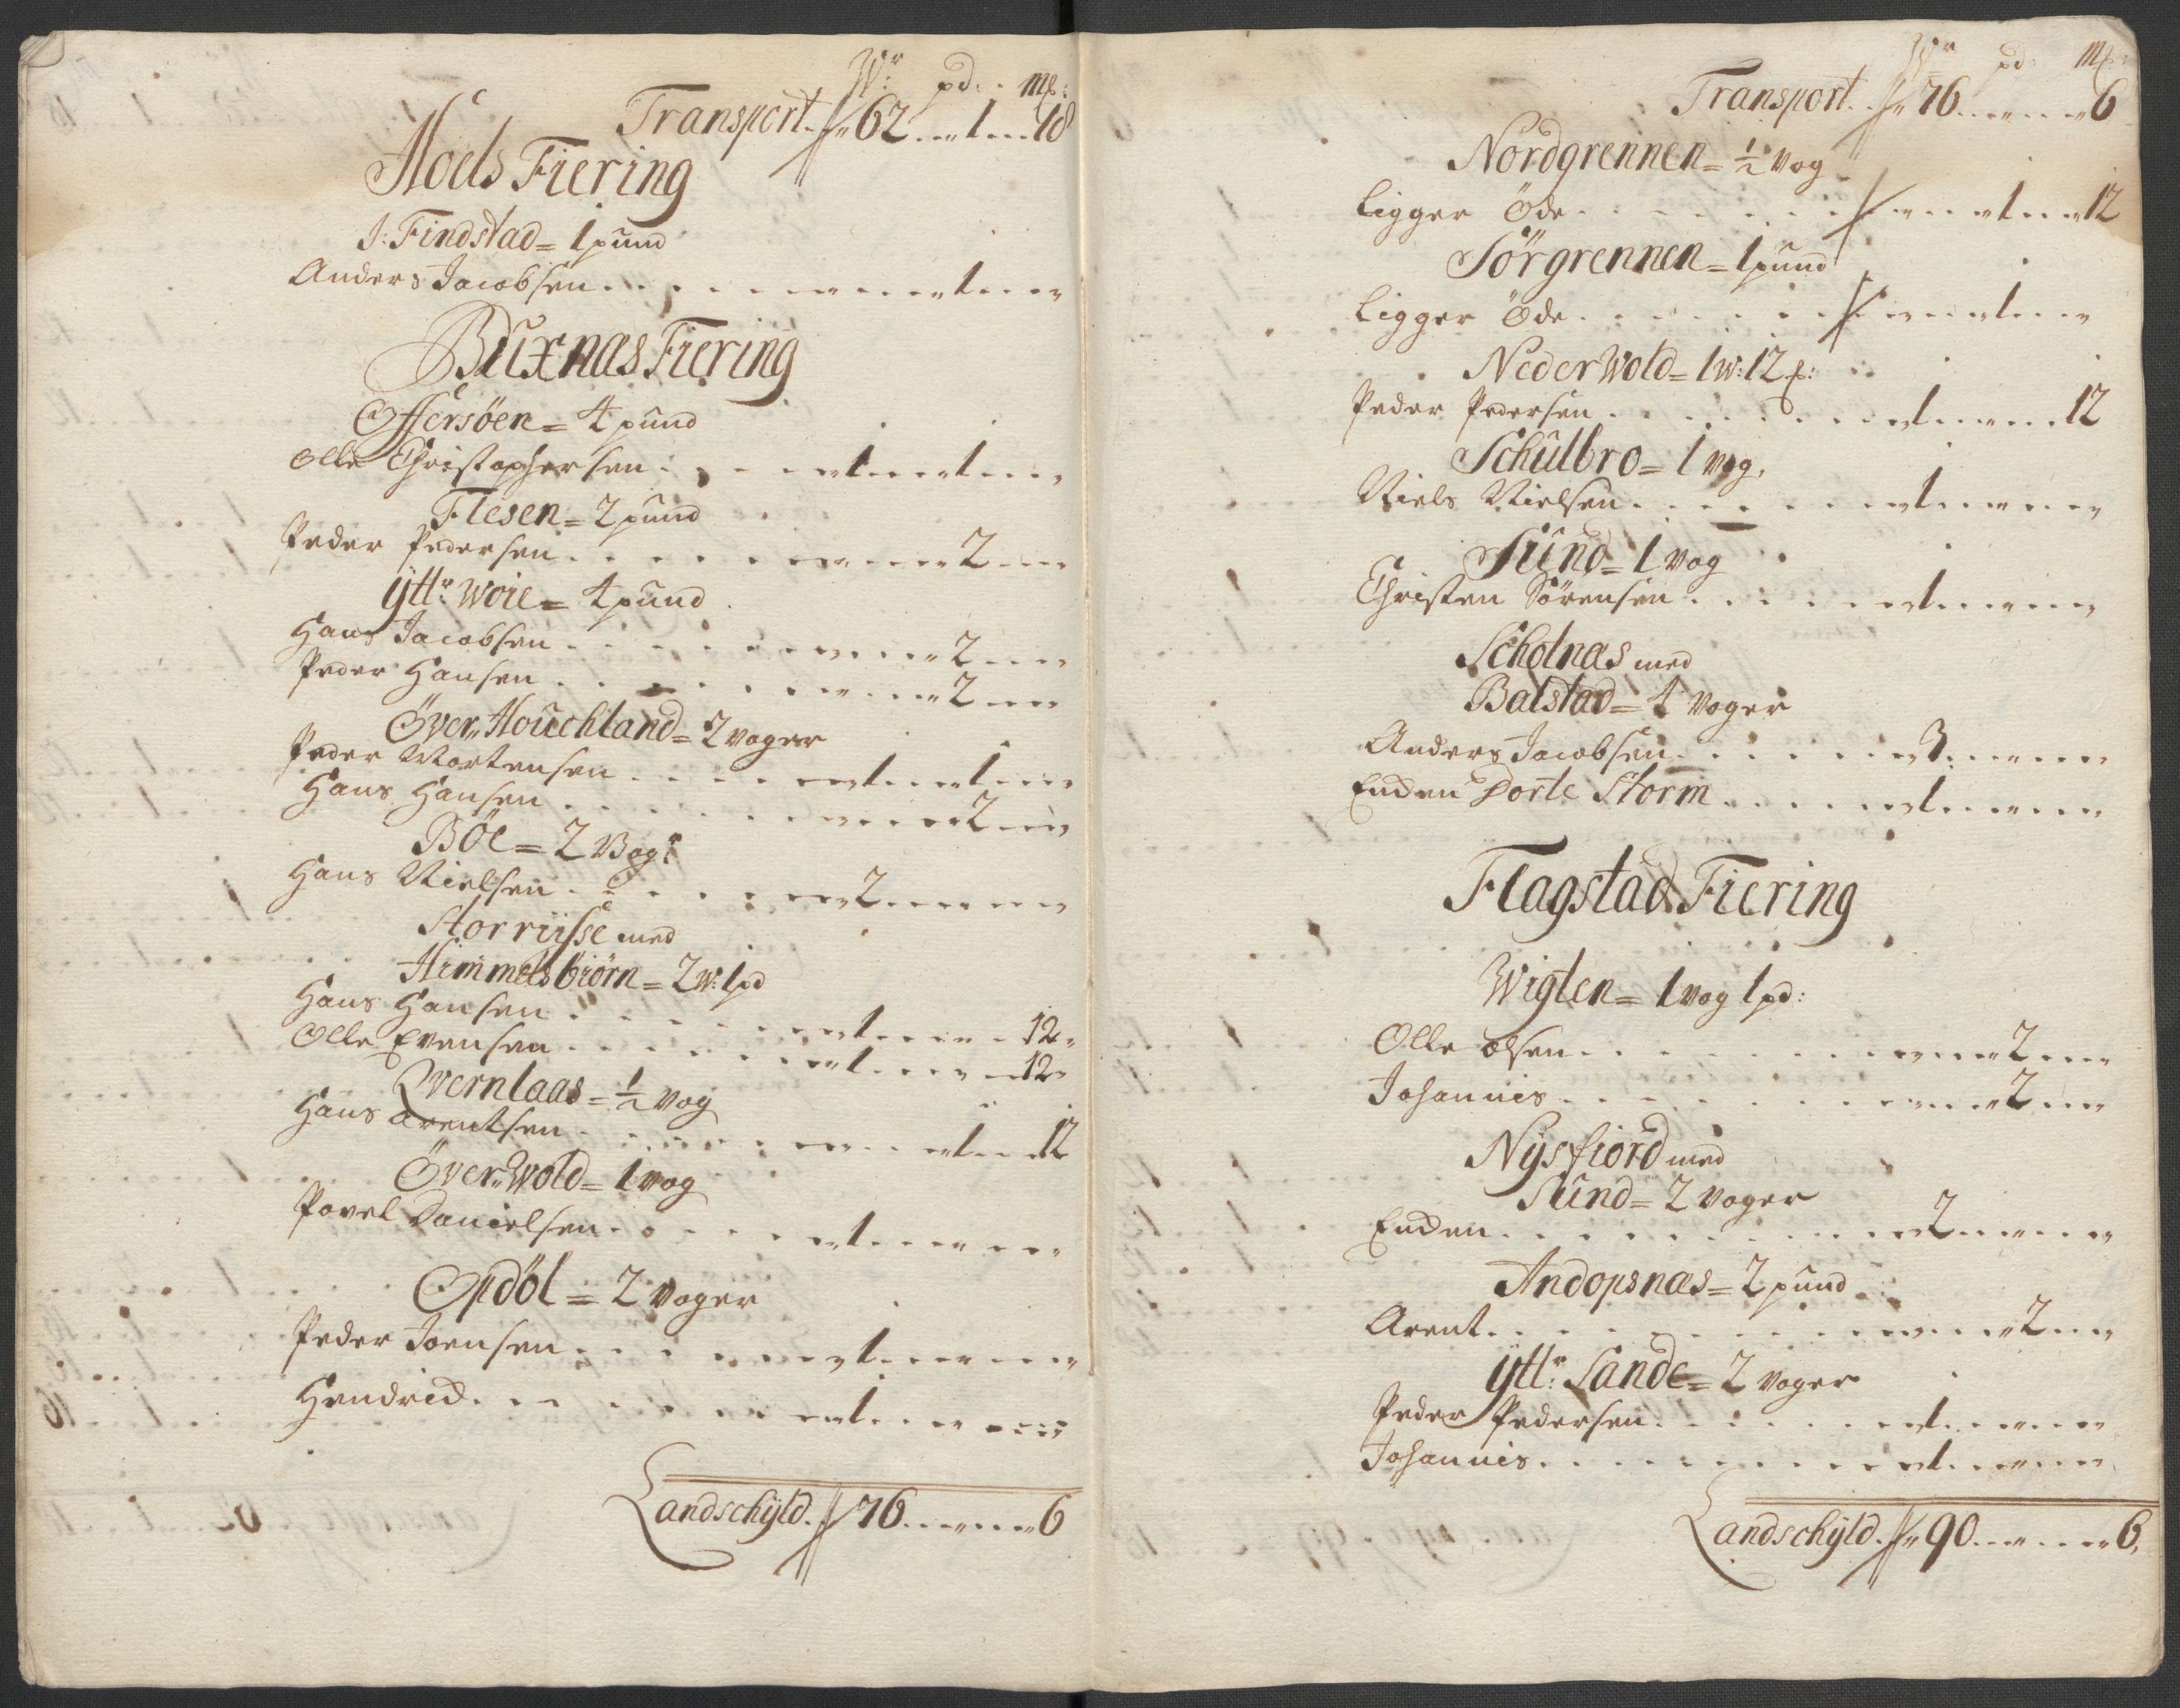 Wr: pd: m&:
Transport. 62 .. 1 .. 18
Hoels Fiering
I: Findstad = 1 pund
Anders Jacobsen . . . . . 1 . . .
Buxnæs Fiering
Offersøen = 4 pund
Olle Christophersen . . . 1 . . 1 . .
Flesen = 2 pund
Peder Pedersen . . . . . 2 . .
Ytr: Woie = 4 pund
Hans Jacobsen . . . . . 2 . .
Peder Hansen . . . . . 2 . .
Över Houchland = 2 voger
Peder Mortensen . . . . 1 . . 1 . .
Hans Hansen . . . . . 2 . .
Böe = 2 Vogr
Hans Nielsen . . . . 2 . . . .
Storriisse med
Himmelsbiörn = 2 W: 1 pd
Hans Hansen . . . . 1 . . . 12
Olle Evensen . . . . 1 . . . 12
Qvernlaas = ½ vog
Hans Arentsen . . . . . 1 . . 12
Över Wold = 1 vog
Povel Danielsen . . . . 1 . . . .
Opdöl = 2 voger
Peder Joensen . . . . 1 . . . .
Hendrich . . . . . 1 . . . .
Landschÿld. 76 . . . . 6
Wr pd: m&:
Transport. 76 . . . . 6
Nordgrennen = ½ vog
Ligger Öde . . . . . 1 . . 12
Sörgrennen = 1 pund
Ligger Öde . . . . . 1 . .
Neder Wold = 1 W: 12 &:
Peder Pedersen . . . . 1 . . . 12
Schulbro = 1 vog.
Niels Nielsen . . . . 1 . . . .
Sund = 1 vog
Christen Sörensen . . . . 1 . . . .
Scholnæs med
Balstad = 4 voger
Anders Jacobsen . . . . 3 . . . .
Enken Dorte Storm . . . . 1 . . . .
Flagstad Fiering
Wigten = 1 vog 1 pd:
Olle Olsen . . . . . 2 . .
Johannis . . . . . 2 . .
Nÿsfiord med
Sund = 2 voger
Enken . . . . . 2 . . . .
Andopsnæs = 2 pund
Arent . . . . . 2 . .
Ytr: Sande = 2 voger
Peder Pedersen . . . . 1 . . . .
Johannis . . . . . 1 . . . .
Landschÿld. 90 . . . . 6.